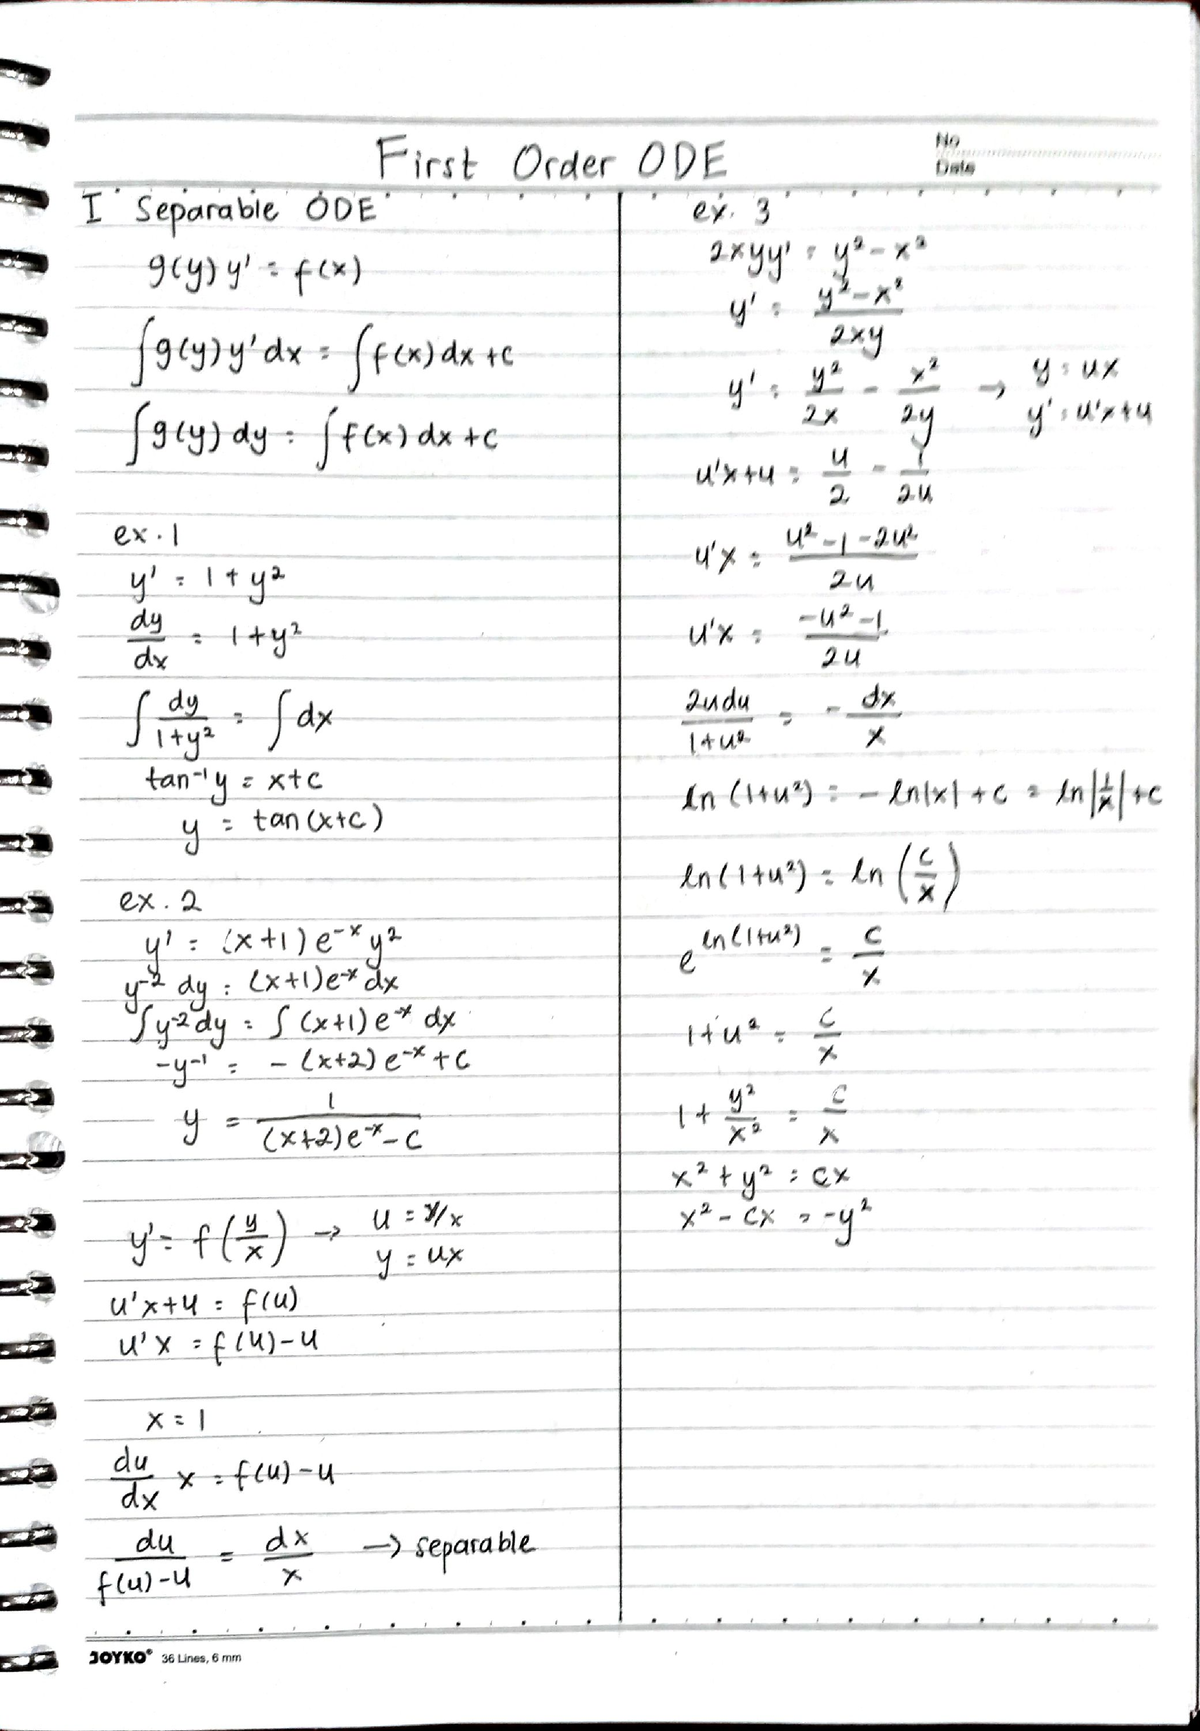 First Order ODE
No
Date
I Separable ODE
g(y) y' = f(x)
∫g(y) y' dx = ∫f(x) dx + c
∫g(y) dy = ∫f(x) dx + c
ex. 1
y' = 1 + y²
dy/dx = 1 + y²
∫ dy/(1+y²) = ∫ dx
tan⁻¹ y = x+c
y = tan(x+c)
ex. 2
y' = (x+1) e^-x y²
y^-2 dy = (x+1)e^-x dx
∫y^-2 dy = ∫ (x+1) e^-x dx
-y^-1 = -(x+2) e^-x + c
y = 1/((x+2)e^-x - c)
y' = f(y/x) → u = y/x
y = ux
u'x+u = f(u)
u'x = f(u)-u
x = 1
du/dx x = f(u)-u
du/(f(u)-u) = dx/x → separable
ex. 3
2xyy' = y² - x²
y' = (y²-x²)/2xy
y' = y²/2x - x²/2y → y = ux
y' = u'x+u
u'x+u = u/2 - 1/2u
u'x = (u²-1-2u²)/2u
u'x = (-u²-1)/2u
2udu/(1+u²) = - dx/x
ln (1+u²) = - ln|x| + c = ln|1/x| + c
ln(1+u²) = ln (c/x)
e^ln(1+u²) = c/x
1+u² = c/x
1 + y²/x² = c/x
x² + y² = cx
x² - cx = -y²
JOYKO® 36 Lines, 6 mm